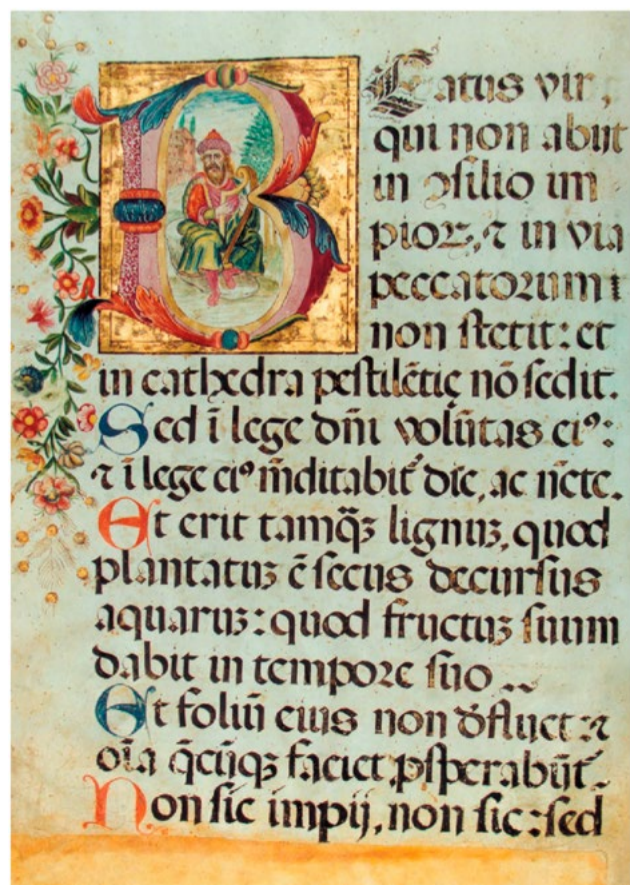 Beatus vir,
qui non abijt
in ↄsilio im
pioꝝ, ⁊ in via
peccatorum
non stetit: et
in cathedra pestilētię nō sedit.
Sed ī lege dn̄i volūtas eiꝰ:
⁊ ī lege eiꝰ m̄ditabit᷑ die, ac nc̄te.
Et erit tamq̄ꝫ lignuꝫ, quod
plantatuꝫ ē secus decursus
aquaruꝫ: quod fructuꝫ suum
dabit in tempore suo
Et foliū eius non d̄fluet: ⁊
oīa q̄cūqꝫ faciet, ꝓsperabūt᷑.
Non sic impij, non sic: sed